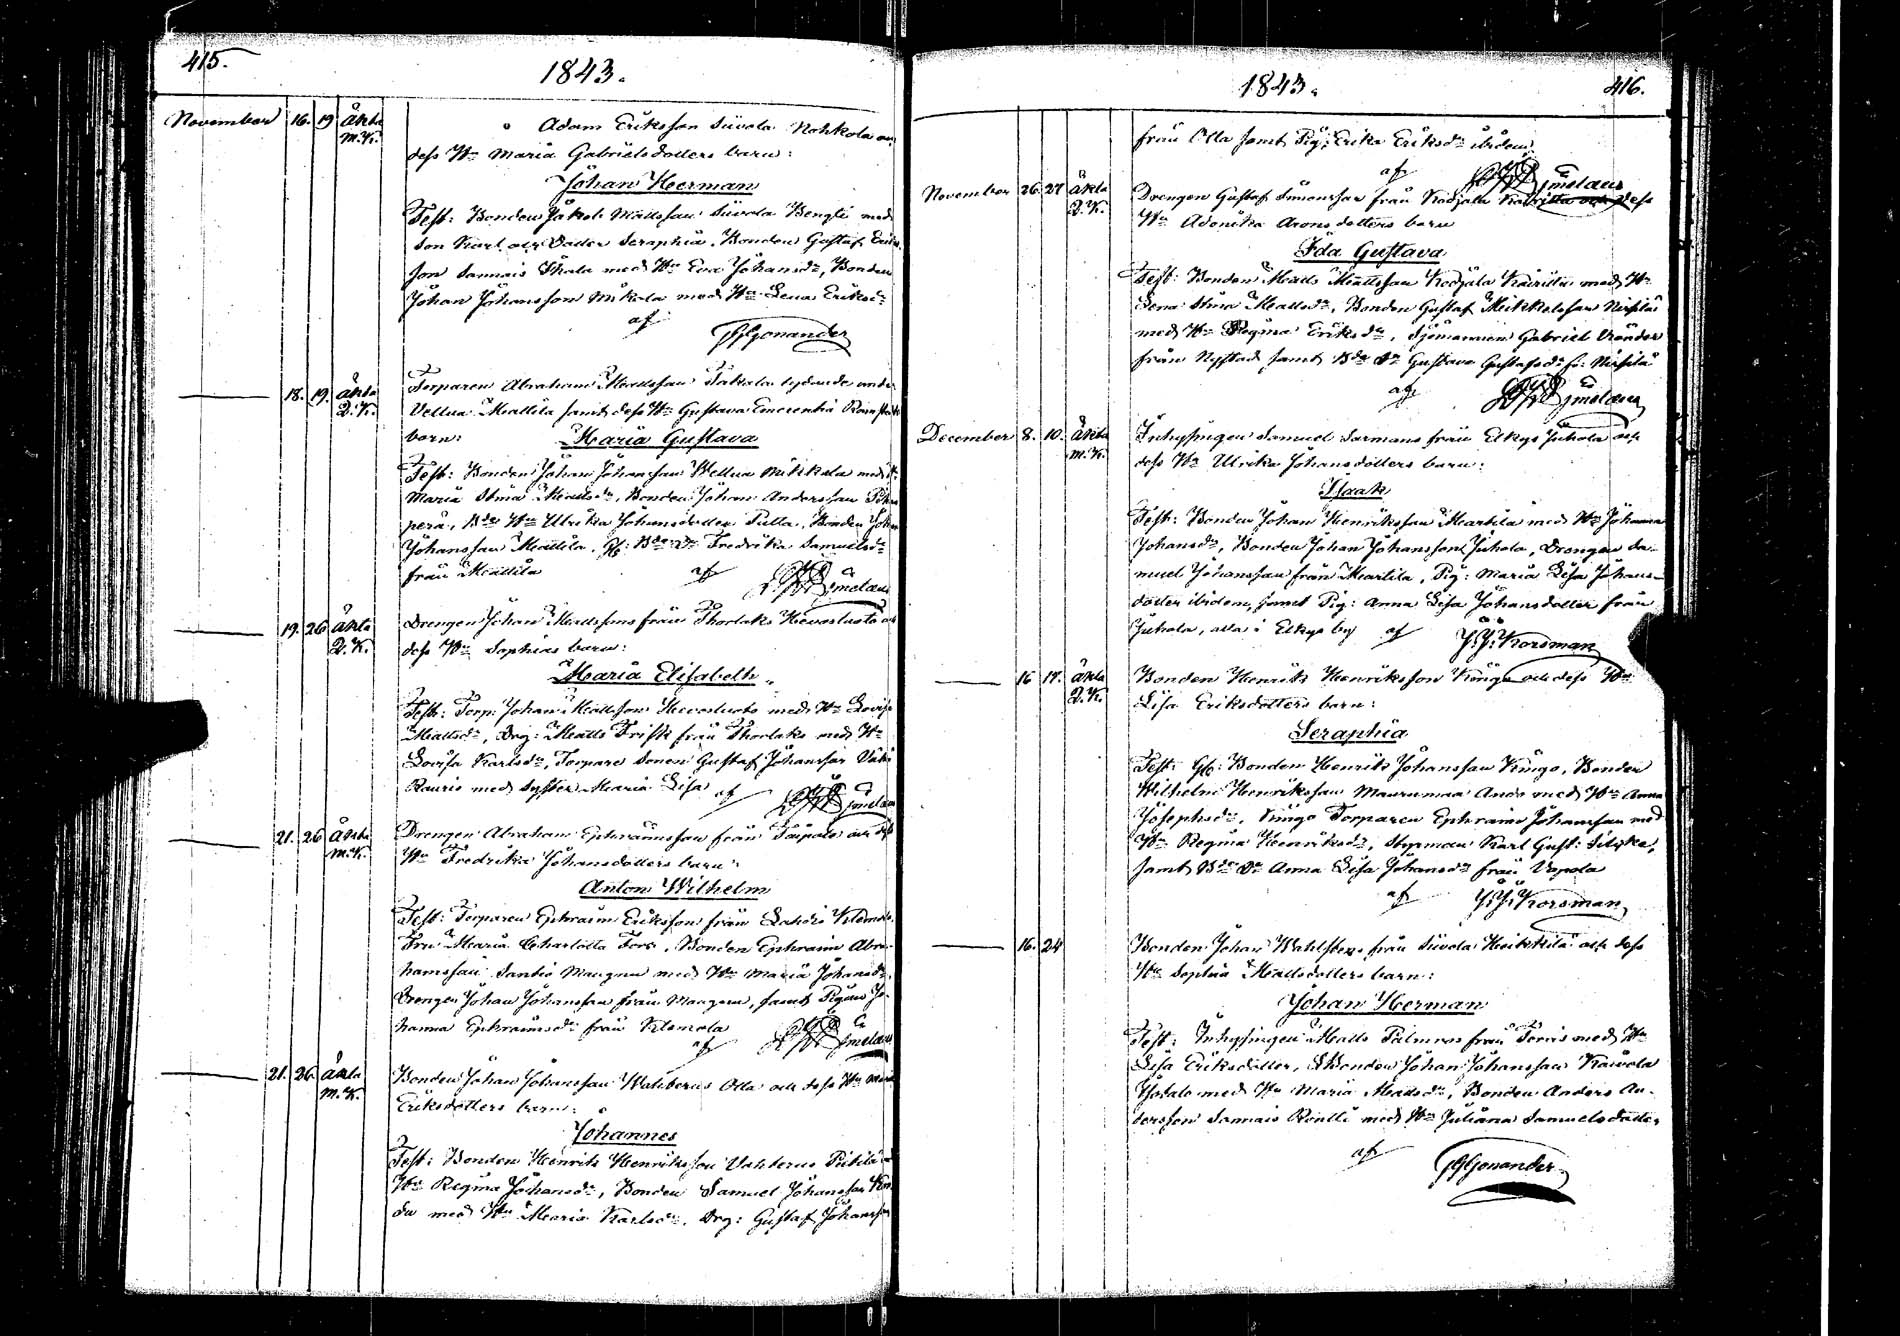 415.
1843.
November 16. 19 Äkta M.K.
Adam Eriksson Siivola Nohkola
dess Hu Maria Gabrielsdotters barn:
Johan Herman
Test: Bonden Jakob Mattsson Siivola Bengti med
son Karl och Dotter Seraphia, Bonden Gustaf
son Sannais Skala med Hu Eva Johansdr, Bonden
Johan Johansson Mikola med Hu Lena Eriksdr
af
18. 19. Äkta Q.K.
Torparen Abraham Mattsson Takala lydande under
Vellua Mattila samt dess Hu Gustava Emerentia
barn: Maria Gustava
Test: Bonden Johan Johansson Vellua Mikkola med
Maria Stina Mattsdr, Bonden Johan Andersson
perä, Bde Hu Ulrika Johansdotter Pulla, Bonden Johan
Johansson Mattila, Gl: Bde Dr Fredrika Samuelsdr
från Mattila af
19. 26 Äkta Q.K.
Drengen Johan Mattsons från Thorlaks Hevosluoto och
dess Hu Sophias barn:
Maria Elisabeth
Test: Torp: Johan Mattsson Hevosluoto med Hu Lovisa
Mattsdr, Drg: Matts Frisk från Thorlaks med Hu
Lovisa Karlsdr, Torpare Sonen Gustaf Johansson
Rauris med syster Maria Lisa af
21. 26 Äkta M.K.
Drengen Abraham Ephraimsson från Taipale och dess
Hu Fredrika Johansdotters barn:
Anton Wilhelm
Test: Torparen Ephraim Eriksson från Klemola
Fru Maria Charlotta Fors, Bonden Ephraim Abra-
hamsson Santio Maugnu med Hu Maria Johansdr,
Drengen Johan Johansson från Maugnu, samt Pigan Jo-
hanna Ephraimsdr från Klemola
af
21. 26. Äkta M.K.
Bonden Johan Johansson Wahberus Olla och dess Hu Maria
Eriksdotters barn:
Johannes
Test: Bonden Henrik Henriksson Vahterus Pietilä
Hu Regina Johansdr, Bonden Samuel Johansson
da med Hu Maria Karlsdr, Drg: Gustaf Johansson
1843.
416.
från Olla samt Pig: Erika Eriksdr ibidem
af
November 26. 27 Äkta Q.K.
Drengen Gustaf Simonsson från Kodjala dess
Hu Adonika Aronsdotters barn
Ida Gustava
Test: Bonden Matts Mattsson Kodjala med Hu
Lena Stina Mattsdr, Bonden Gustaf Mikkelsson
med Hu Regina Eriksdr, Sjömannen Gabriel
från Nystad samt Bde Dr Gustava Gustafsdr
af
December 8. 10. Äkta M.K.
Inhysingen Samuel Sarmans från Elkys Juhola och
dess Hu Ulrika Johansdotters barn:
Isaak
Test: Bonden Johan Henriksson Martila med Hu Johanna
Johansdr, Bonden Johan Johansson Juhola, Drengen Sa-
muel Johansson från Martila, Pig: Maria Lisa Johans-
dotter ibidem, samt Pig: Anna Lisa Johansdotter från
Juhola, alla i Elkys by af J.J. Korsman
16 17. Äkta Q.K.
Bonden Henrik Henriksson Kingo och dess Hu
Lisa Eriksdotters barn:
Seraphia
Test: Gl: Bonden Henrik Johansson Kingo, Bonden
Wilhelm Henriksson Maurumaa Ands med Hu Anna
Josephsdr, Kingo Torparen Ephraim Johansson med
Hu Regina Henriksdr, Styrman Karl Gust:
samt Bde Dr Anna Lisa Johansdr från Vapola
af J.J. Korsman
16. 24
Bonden Johan Wahlsten från Siivola Heikkilä och dess
Hu Sophia Mattsdotters barn:
Johan Herman
Test: Inhysingen Matts Palmros från med Hu
Lisa Eriksdotter, Bonden Johan Johansson Kaivola
Yhtalo med Hu Maria Mattsdr, Bonden Anders An-
dersson Sannais Rentti med Hu Juliana Samuelsdotter
af